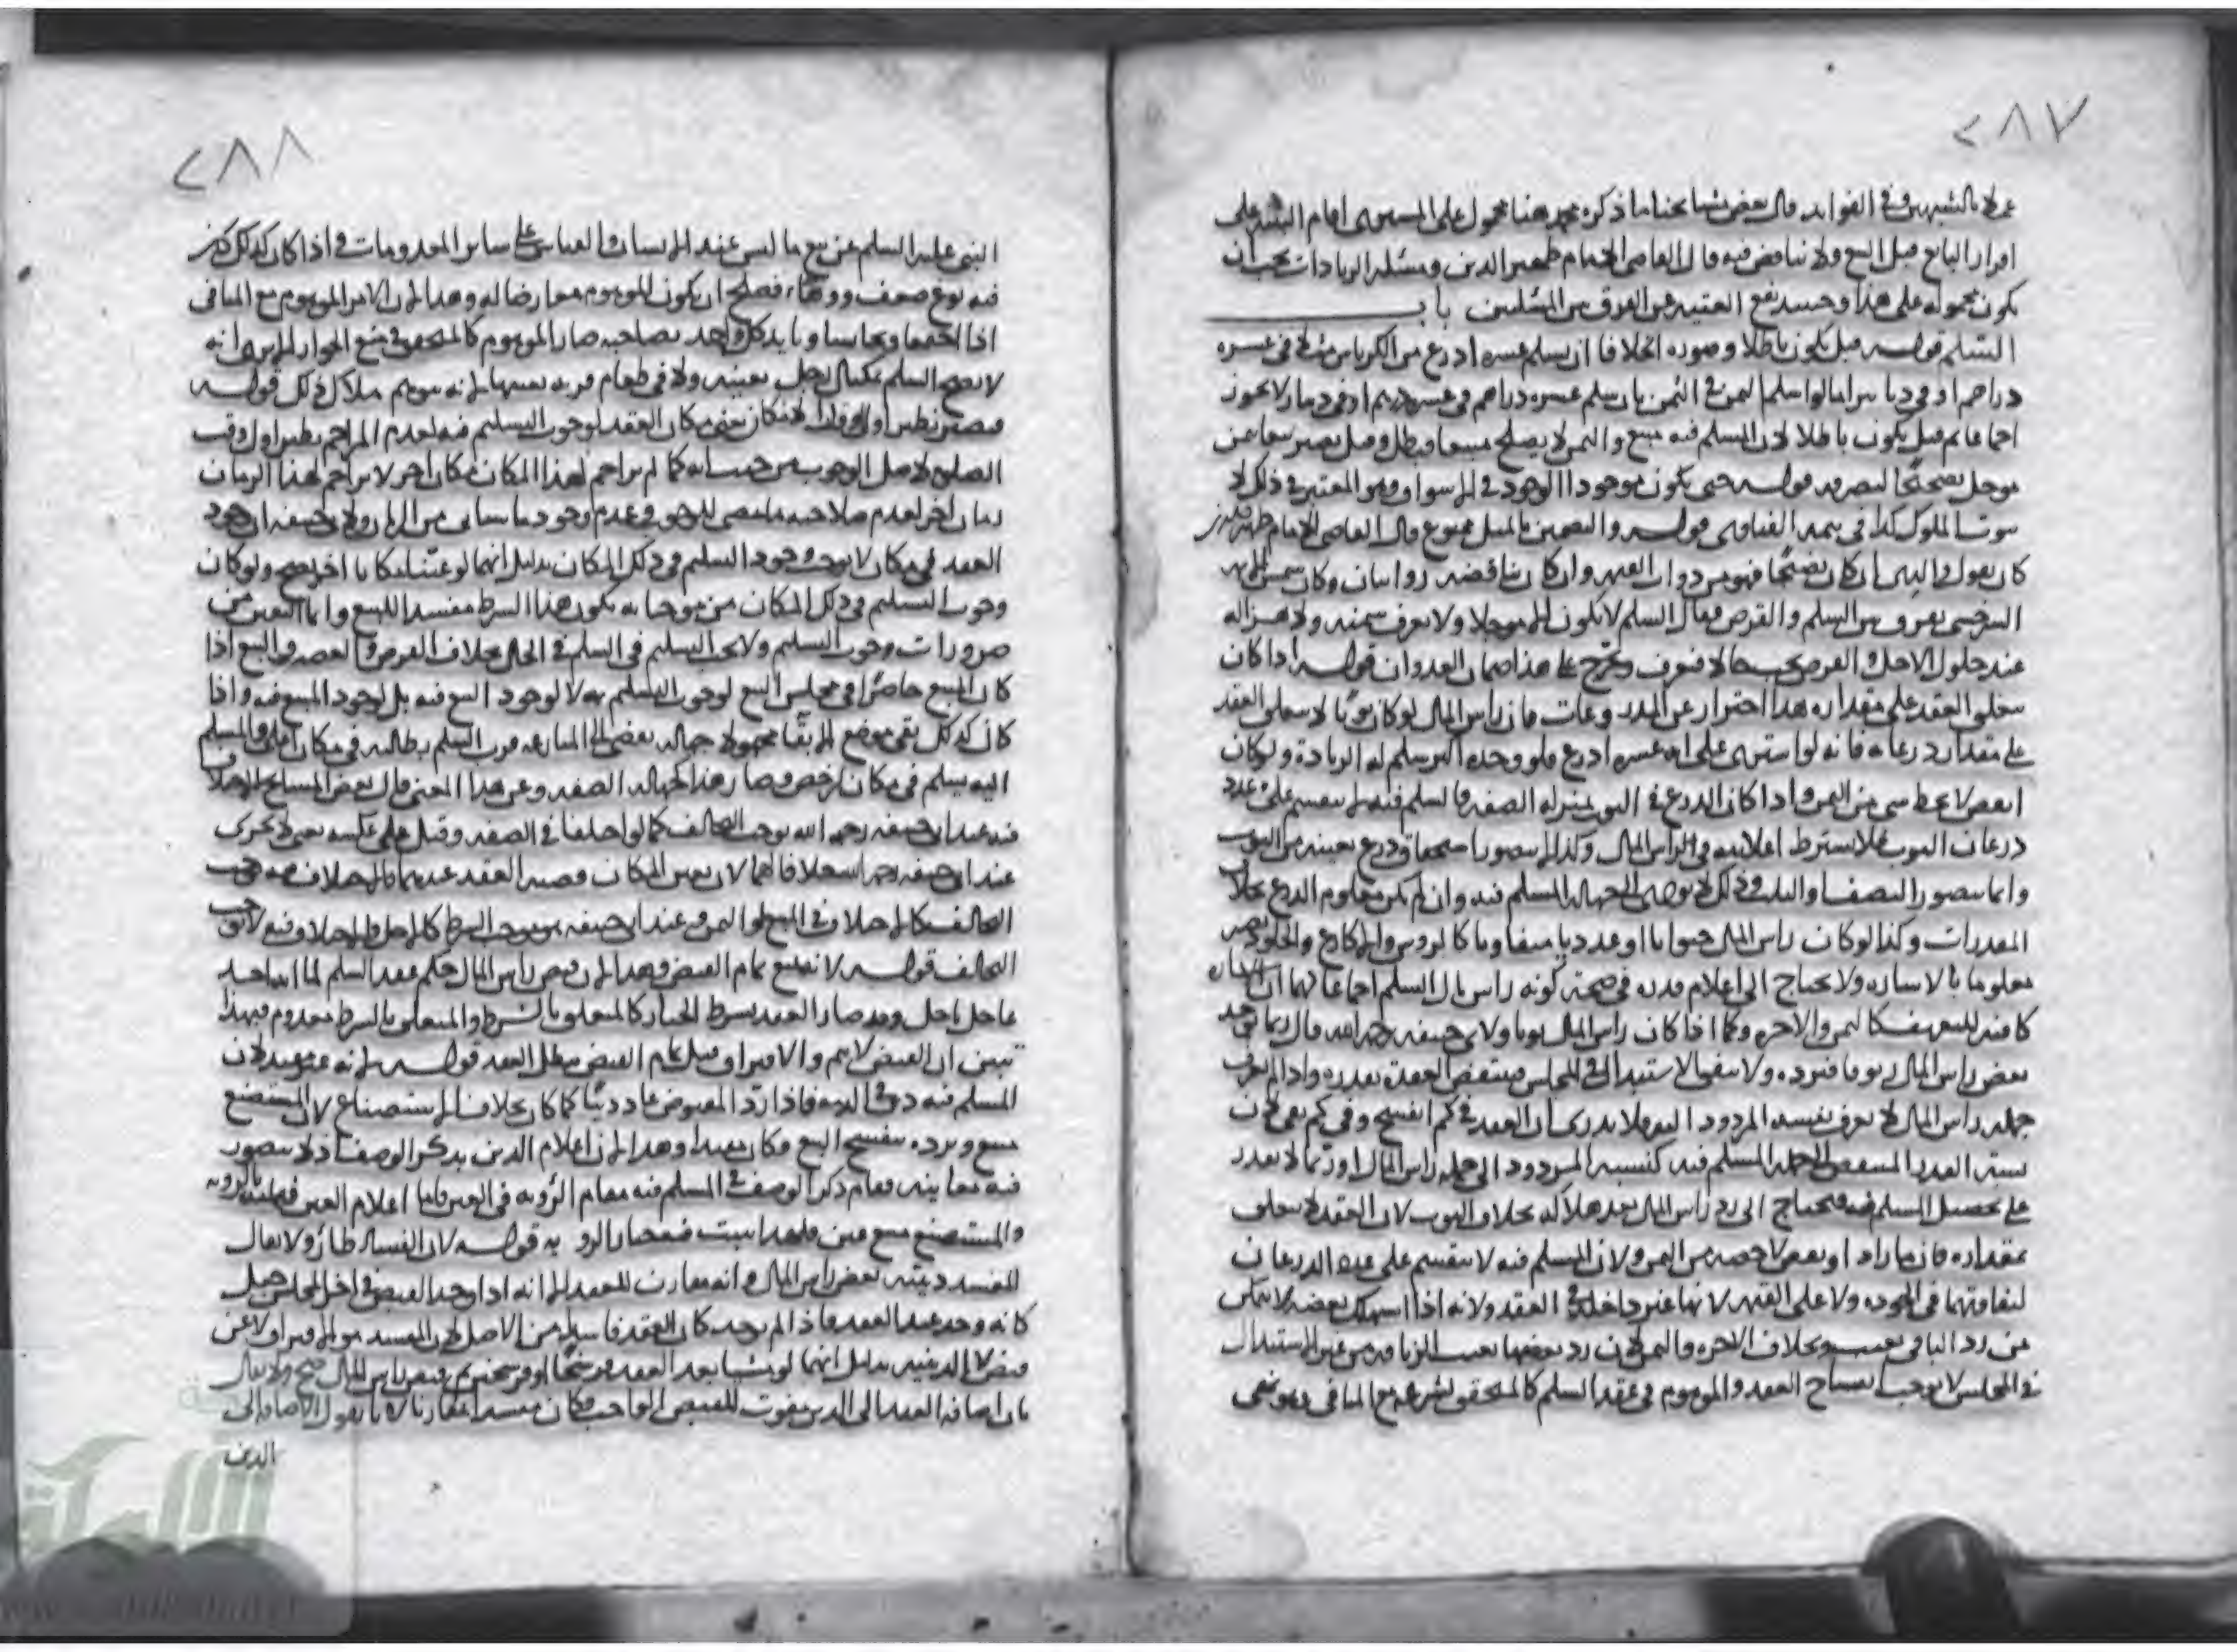 ٢٨٧
عملا بالشبهين وفي الفوايد قال بعض مشايخنا ما ذكره محمد هنا محمول على المشتري اقام البينة على
اقرار البايع قبل البيع ولا تناقض فيه قال القاضي الامام ظهير الدين ومسئلة الزيادات يجب ان
يكون محمولة على هذا وحينئذ يقع الغنية عن الفرق بين المسئلتين باب
السلم قوله قيل يكون باطلا وصورة الخلاف ان يسلم عشرة اذرع من الكرباس مثلا في عشرة
دراهم او في دينار اما لو اسلم الثمن في الثمن بان يسلم عشرة دراهم في عشرة دراهم او في دينار لا يجوز
اجماعا ثم قيل يكون باطلا لان المسلم فيه مبيع والثمن لا يصلح مبيعا فبطل وقيل يصير بيعا بثمن
مؤجل تصحيحا لتصرفه قوله حتى يكون موجودا الوجود في الاسواق وهو المعتبر في ذلك لا
بيوت الملوك كذا في تتمة الفتاوى قوله والتضمين بالمثل ممنوع قال القاضي الامام
كان يقول والتي ان كان تصحيحا فهو من ذوات القيم وان كان تناقضه روايتان وكان شمس الائمة
السرخسي يفرق بين السلم والقرض فقال السلم لا يكون الا مؤجلا ولا يعرف سمنه ولا هزاله
عند حلول الاجل والقرض يجب حالا فيعرف ويخرج على هذا ضمان العدوان قوله اذا كان
يتعلق العقد على مقداره هذا احتراز عن المذروعات فان رأس المال لو كان ثوبا لا يتعلق العقد
على مقدار ذرعانه فانه لو اشترى على انه عشرة اذرع فلو وجده اكثر يسلم له الزيادة ولو كان
انقص لا يحط شيء من الثمن واذا كان الذرع في الثوب بمنزلة الصفة والمسلم فيه لا ينقسم على عدد
ذرعان الثوب فلا يشترط اعلامه في رأس المال وكذا لا يتصور استحقاق ذرع بعينه من الثوب
وانما يتصور النصف او الثلث وذلك لا يؤدي الى جهالة المسلم فيه وان لم يكن معلوم الذرع بخلاف
المقدرات وكذا لو كان رأس المال حيوانا او عدديا متفاوتا كالرؤس والاكارع والجلود يصير
معلوما بالاشارة ولا يحتاج الى اعلام قدره في صحة كونه رأس مال السلم اجماعا لهما ان الاشارة
كافية للتعريف كالثمن والاجرة وكما اذا كان رأس المال ثوبا ولابي حنيفة رحمه الله قال ربما يوجد
بعض رأس المال زيوفا فيرده ولا يتفق الاستبدال في المجلس فينتقض العقد بقدره واذا لم يعرف
جملة رأس المال لا يعرف نسبة المردود اليه فلا يدرى ان العقد في كم انفسخ وفي كم بقي لان
نسبة القدر المنتقض الى جملة المسلم فيه كنسبة المردود الى جملة رأس المال او ربما لا يقدر
على تحصيل المسلم فيه فيحتاج الى رد رأس المال بعد هلاكه بخلاف الثوب لان العقد لا يتعلق
بمقداره فان ما زاد او نقص لا حصة من الثمن ولان المسلم فيه لا ينقسم على عدد الذرعان
لتفاوتها في الجودة ولا على القيمة لانها غير داخلة في العقد ولانه اذا استهلك بعضه لا يتمكن
من رد الباقي بعيب وبخلاف الاجرة والثمن لان رد بعضها بعيب الزيافة من غير الاستبدال
في المجلس لا يوجب انفساخ العقد والموهوم في عقد السلم كالمتحقق لشرعه مع المنافي وهو نهي
٢٨٨
النبي عليه السلم عن بيع ما ليس عند الانسان والقياس على ساير المعدومات واذا كان كذلك تمكن
فيه نوع ضعف ووهاء فصلح ان يكون الموهوم معارضا له وهذا لان الامر الموهوم مع المنافي
اذا اجتمعا وتجانسا وتأيد كل واحد بصاحبه صار الموهوم كالمتحقق في منع الجواز الا يرى انه
لا يصح السلم بمكيال رجل بعينه ولا في طعام قرية بعينها لانه موهم هلاك ذلك قوله
فصار نظير اول اوقات الامكان يعني مكان العقد لوجوب التسليم فيه لعدم المزاحم نظير اول وقت
الصلوة لاصل الوجوب من حيث انه كما لم يزاحم لهذا المكان مكان اخر لا يزاحم لهذا الزمان
زمان اخر لعدم صلاحية ما مضى للوجوب وعدم وجود ما سيأتي من الزمان ولابي حنيفة ان وجود
العقد في مكان لا يوجب وجود السلم في ذلك المكان بدليل انهما لو عينا مكانا اخر يصح ولو كان
وجوب التسليم في ذلك المكان من موجباته يكون هذا الشرط مفسدا للبيع واما التعين من
ضرورات وجوب التسليم ولا يجب التسليم في السلم في الحال بخلاف القرض والغصب والبيع اذا
كان المبيع حاضرا في مجلس البيع لوجوب التسليم به لا لوجود البيع فيه بل لوجود المبيع فيه واذا
كان كذلك بقي موضع الايفاء مجهولا جهالة يفضي الى المنازعة فرب السلم يطالبه في مكان اعلى والمسلم
اليه يسلم في مكان ارخص وصار هذا كجهالة الصفة وعن هذا المعنى قال بعض المشايخ الاختلاف
فيه عند ابي حنيفة رحمه الله يوجب التحالف كما لو اختلفا في الصفة وقيل على عكسه يعني لا يجري
عند ابي حنيفة رحمه الله خلافا لهما لان تعين المكان قضية العقد عندهما فالاختلاف فيه يوجب
التحالف كالاختلاف في المبيع او الثمن وعند ابي حنيفة بموجب الشرط كالاجل والاختلاف فيه لا يوجب
التحالف قوله لا يمنع تمام القبض وهذا لان قبض رأس المال حكم عقد السلم لما انه اخذ
عاجل باجل وقد صار العقد بشرط الخيار كالمتعلق بالشرط والمتعلق بالشرط معدوم فبهذا
تبين ان القبض لا يتم والافتراق قبل تمام القبض يبطل العقد قوله لانه غير مفيد لان
المسلم فيه دين في الذمة فاذا رد المقبوض عاد دينا كما كان بخلاف الاستصناع لان المستصنع
مبيع وبرده ينفسخ البيع فكان مفيدا وهذا لان اعلام الدين بذكر الوصف اذ لا يتصور
فيه معاينة فقام ذكر الوصف في المسلم فيه مقام الرؤية في العين فاما اعلام العين فبالرؤية
والمستصنع مبيع عين فلهذا يثبت فيه خيار الرؤية قوله لان الفساد طار ولا يقال
المفسد دينية بعض رأس المال وانه مقارن للعقد لانه اذا وجد القبض في اخر المجلس جعل
كانه وجد عند العقد فاذا لم يوجد كان العقد فاسدا من الاصل لان المفسد هو الافتراق لا عن
قبض لا الدينية بدليل انهما لو شبا بعد العقد فرسخا او فرسخين ثم قبض رأس المال صح ولا يقال
بان اضافة العقد الى الدين يفوت القبض الواجب فكان مفسدا مقارنا لانا نقول الاضافة الى
الدين